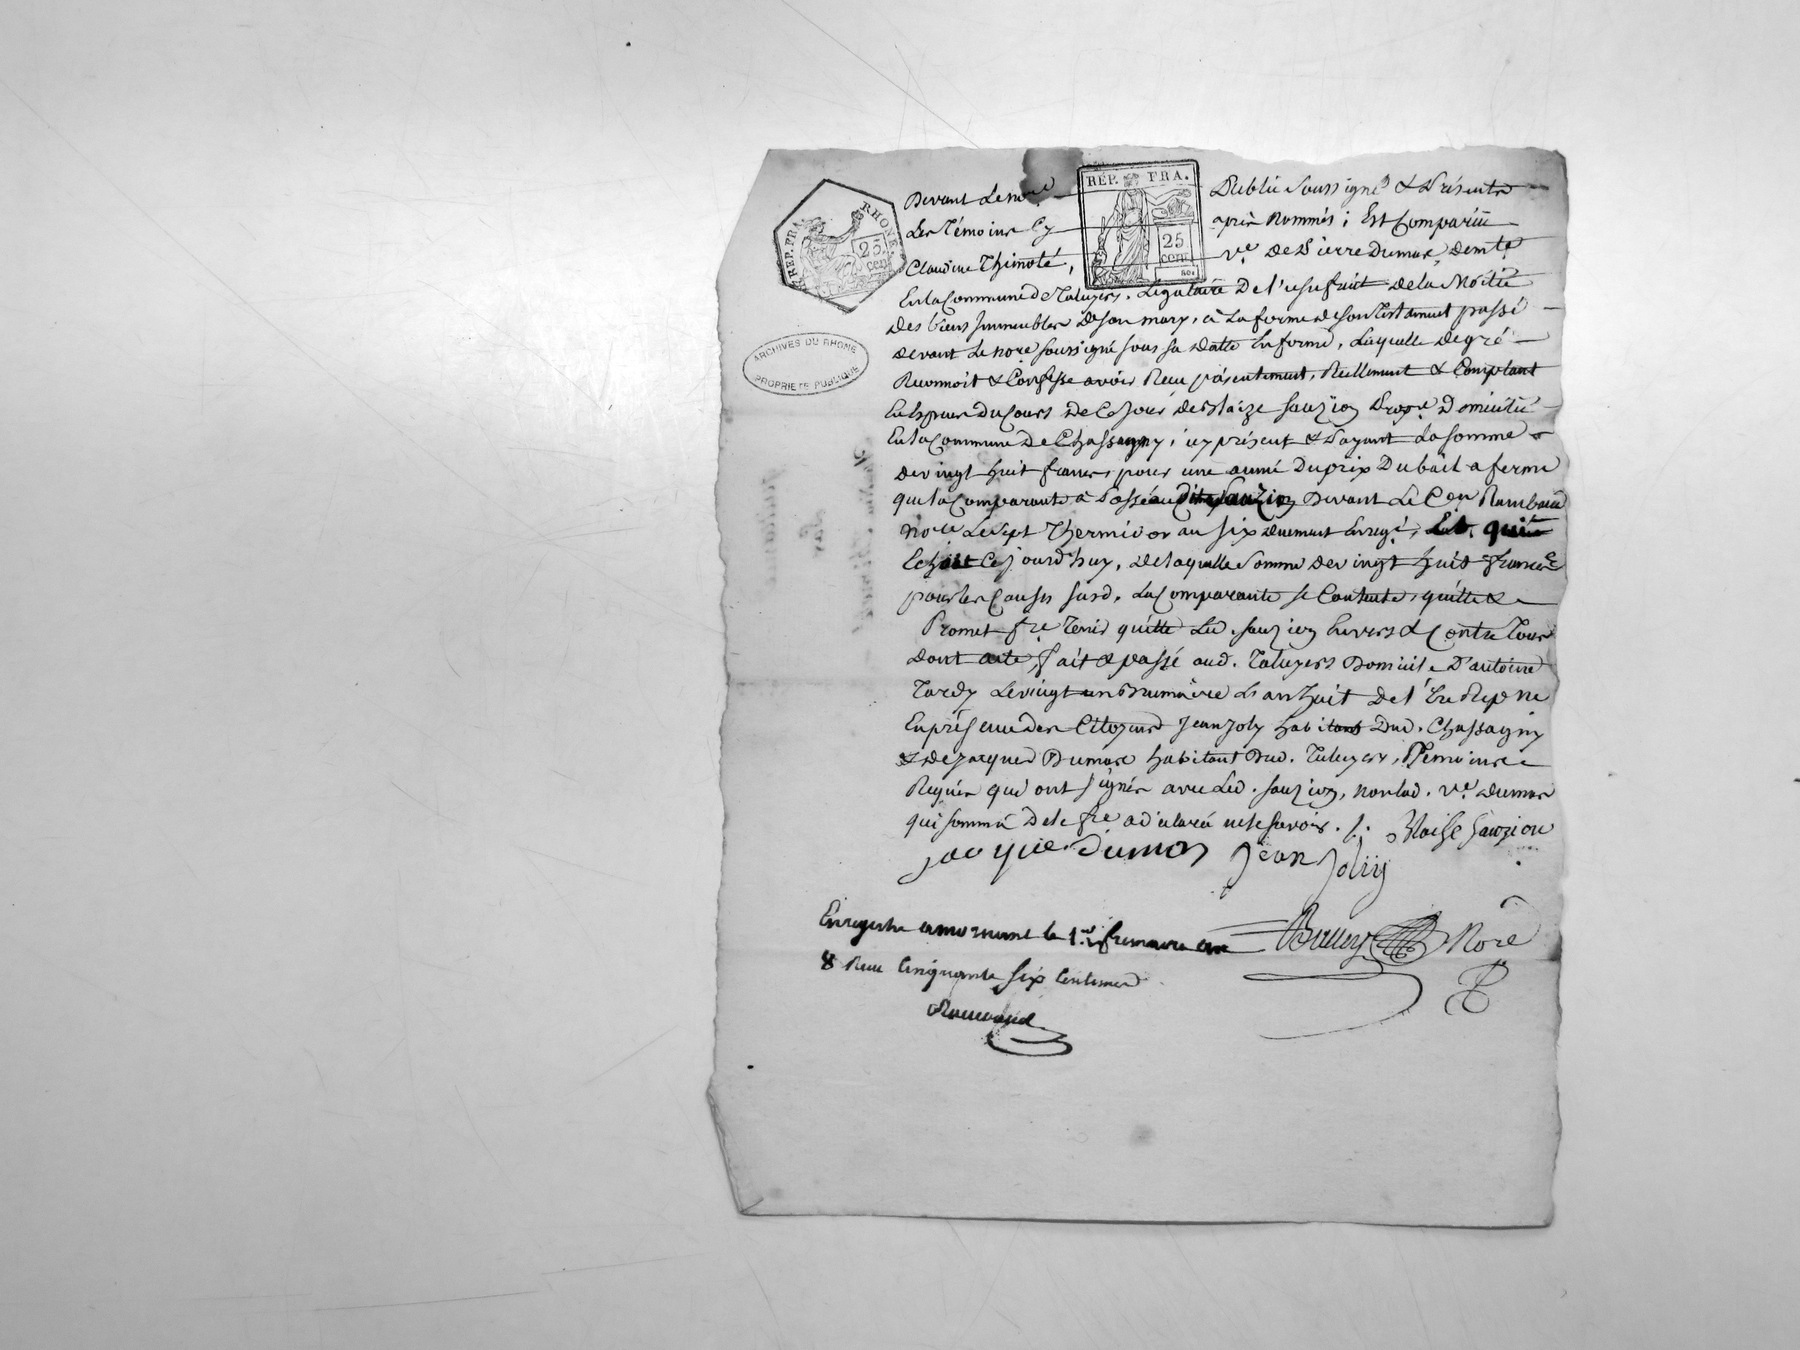 REP. FRA. RHONE. 25 cen.
REP. FRA.
25
cen.
ARCHIVES DU RHONE
PROPRIETE PUBLIQUE
Devant Le no.re Public soussigné & Présents
Les Témoins Cy après Nommés ; Est Comparüe
Claudine Thimoté, v.e de Pierre Dumas, dem.te
En la Commune de Taluyers, Légataire De l'usufruit de la Moitié
des biens Immeubles de son mary, à La forme de son Testament passé
devant Le no.re soussigné sous sa datte En forme, Laquelle de gré
Reconnoit & Confesse avoir Reçu présentement, Réellement & Comptant
En Espèces du Cours de Ce Jour, de Blaize Sauzion Prop.re Domicilié
En la Commune de Chassagny, icy présent & Payant La somme
de vingt huit francs, pour une année du prix Du bail a ferme
que la Comparante a Passé au dit Sauzion Devant Le C.en Rambaud
no.re Le sept Thermidor an six duement Enreg.é,
Echüe Ce jourd'huy, de laquelle somme de vingt huit francs
pour les Causes susd. La Comparante se Contente, quitte &
Promet f.re Tenir quitte Led. Sauzion Envers & Contre Tous
dont acte, fait & passé aud. Taluyers Domicile D'antoine
Tardy Le vingt un Brumaire L'an huit De l'Ere Rep.ne
En présence des Citoyens Jean Joly habitant Dud. Chassagny
& de Jacques Dumas habitant Dud. Taluyers, Témoins
Requis qui ont signés avec Led. Sauzion, non lad. v.e Dumas
qui sommée De le f.re a déclaré ne le savoir. Blaize Sauzion
jacque Dumas Jean Joliy
Enregistré a mornant le 1.er frimaire an
8 Reçu Cinquante six Centimes
No.re